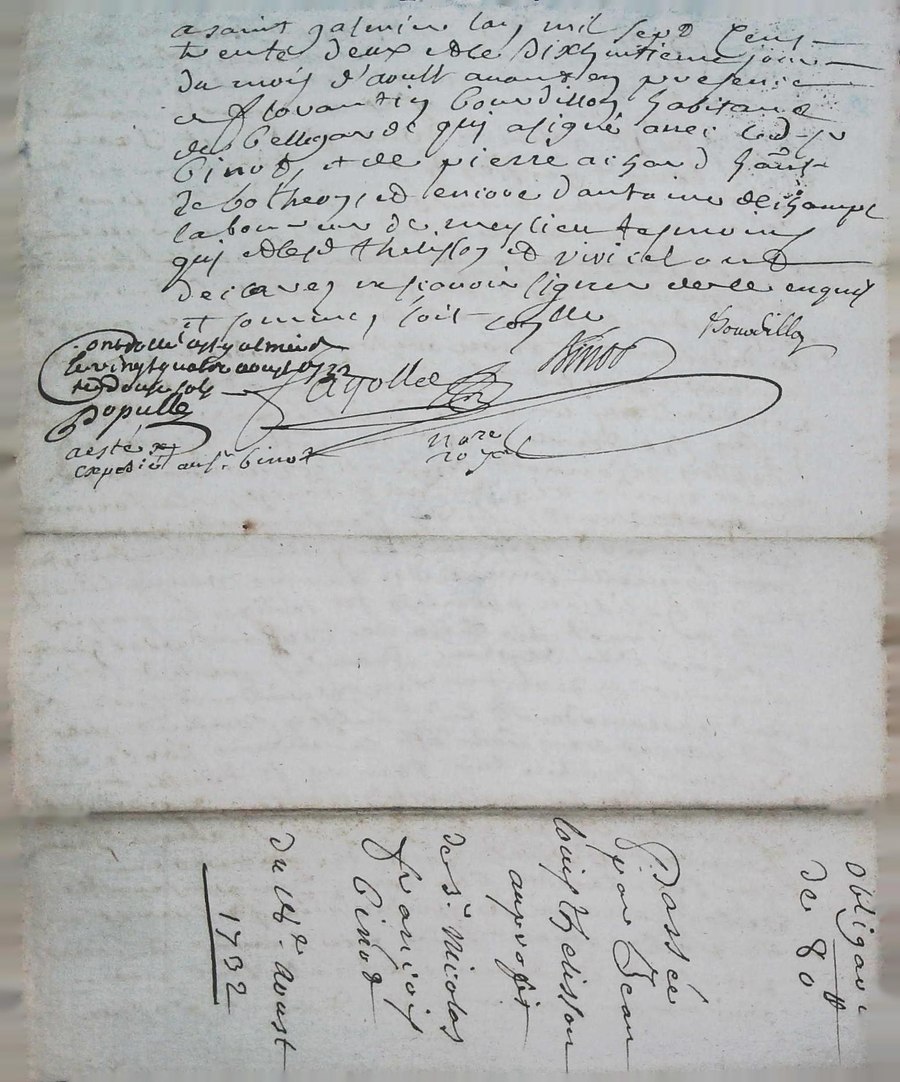 a saint galmier lan mil sept cens
trente deux et le dixhuitieme jour
du mois d'aoust avant en presence
de florantin bourdillon habitant
de bellegarde qui a signé avec led. sr
Binot, et de pierre achard hant
de botheon, et encore d'antoine deschamps
laboureur de meylieu tesmoins
qui et lesd. thelisson et
declarez ne scavoir signer de ce enquis
et sommez soit
Bourdillon
Binot
controllé a st galmier
le vingt quatre aoust 1732
recu douze sols
Populle
nore
royal
a esté
expedié au sr. Binot
obliga
de 80
Passée
par Jean
louis thelisson
au proffit
de sr. Nicolas
francois
Binot
du 18e. aoust
1732